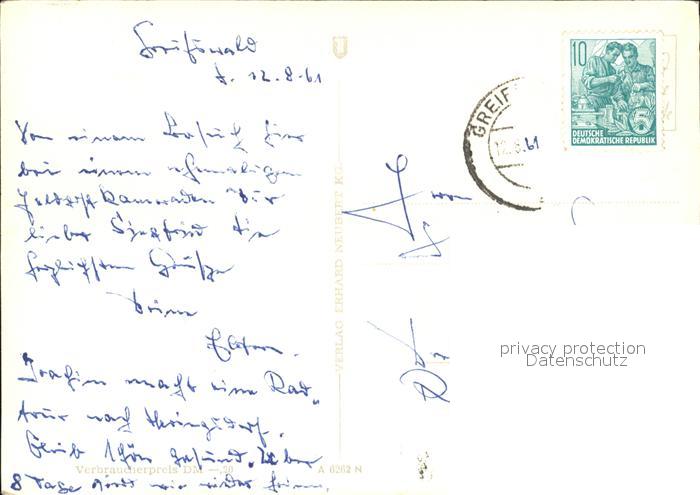 Greifswald
d. 12.8.61
Von einem Besuch hier
bei einem ehemaligen
Kameraden Dir
lieber Siegfried die
herzlichsten Grüße
Deine
Eltern.
Joachim macht eine Rad-
tour nach Heringsdorf.
Bleib schön gesund.
8 Tage sind wir wieder
Verbraucherpreis DM —,20
A 6262 N
VERLAG ERHARD NEUBERT KG.
GREIF
12.8.61
10
5
DEUTSCHE
DEMOKRATISCHE REPUBLIK
privacy protection
Datenschutz